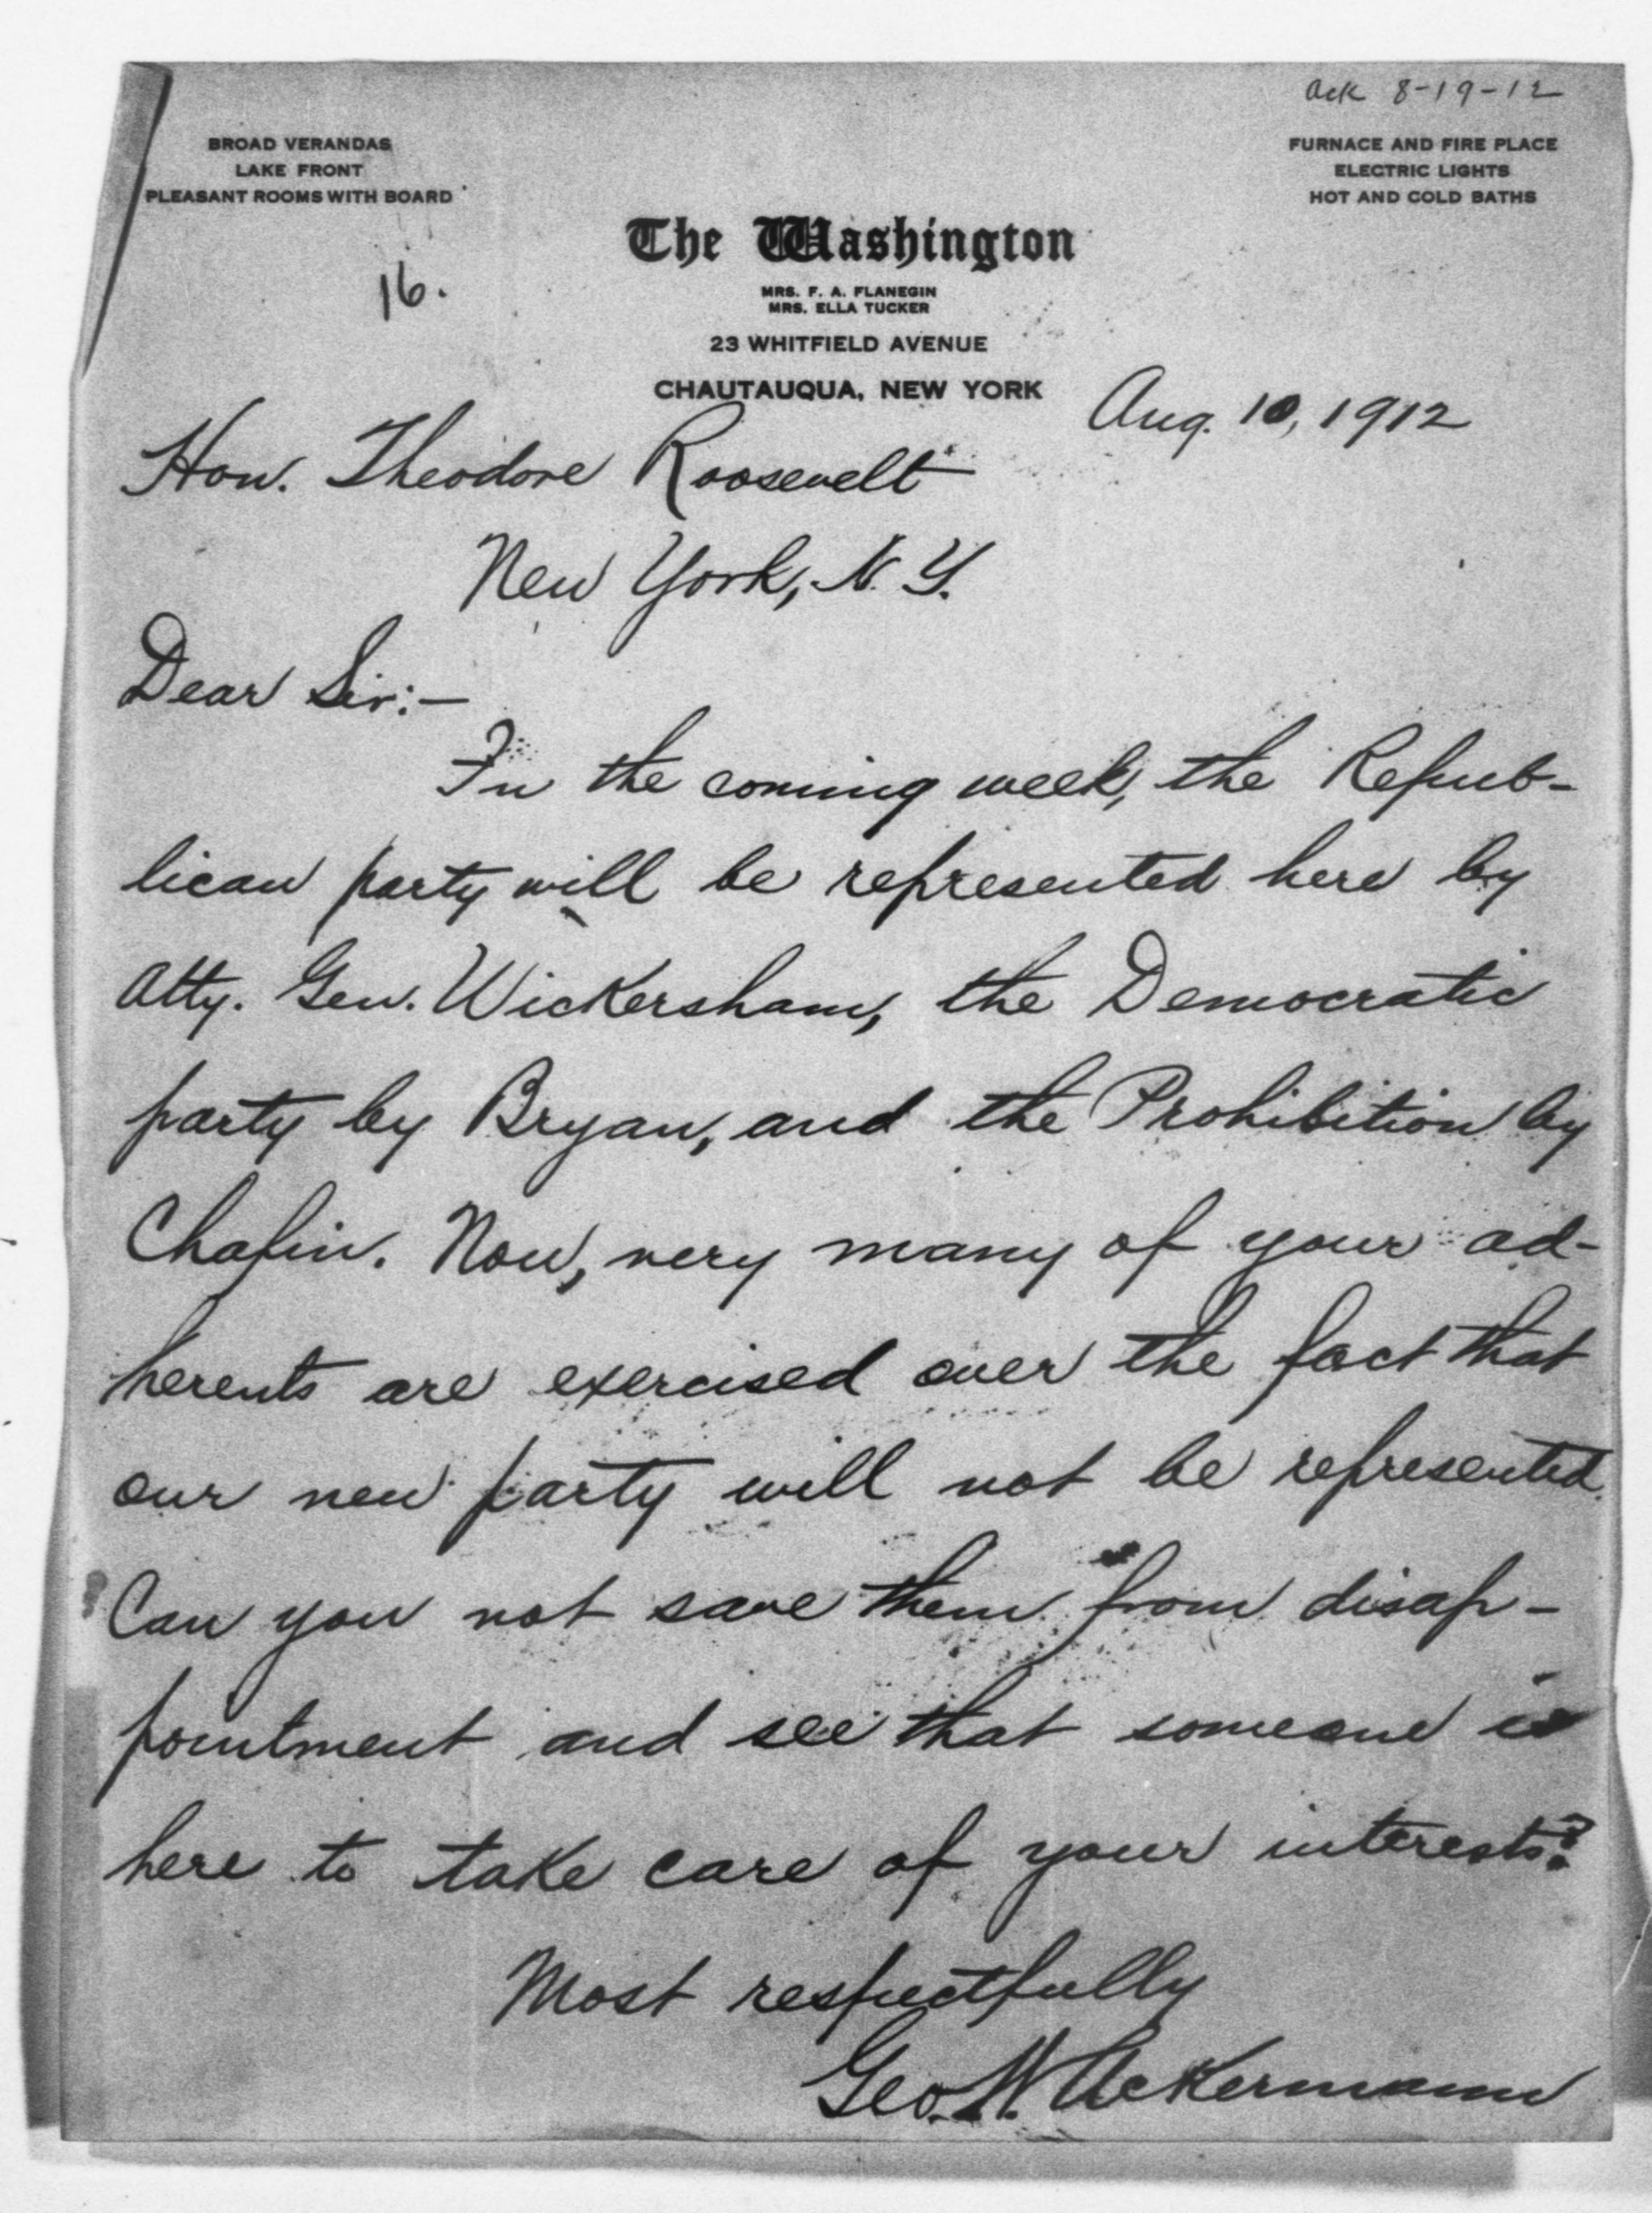 ack 8-19-12
BROAD VERANDAS
LAKE FRONT
PLEASANT ROOMS WITH BOARD
FURNACE AND FIRE PLACE
ELECTRIC LIGHTS
HOT AND COLD BATHS
The Washington
MRS. F. A. FLANEGIN
MRS. ELLA TUCKER
16.
23 WHITFIELD AVENUE
CHAUTAUQUA, NEW YORK
Aug. 10, 1912
Hon. Theodore Roosevelt
New York, N. Y.
Dear Sir:—
In the coming week, the Repub-
lican party will be represented here by
Atty. Gen. Wickersham, the Democratic
party by Bryan, and the Prohibition by
Chafin. Now, very many of your ad-
herents are exercised over the fact that
our new party will not be represented.
Can you not save them from disap-
pointment and see that someone is
here to take care of your interests?
Most respectfully
Geo. W. Ackermann